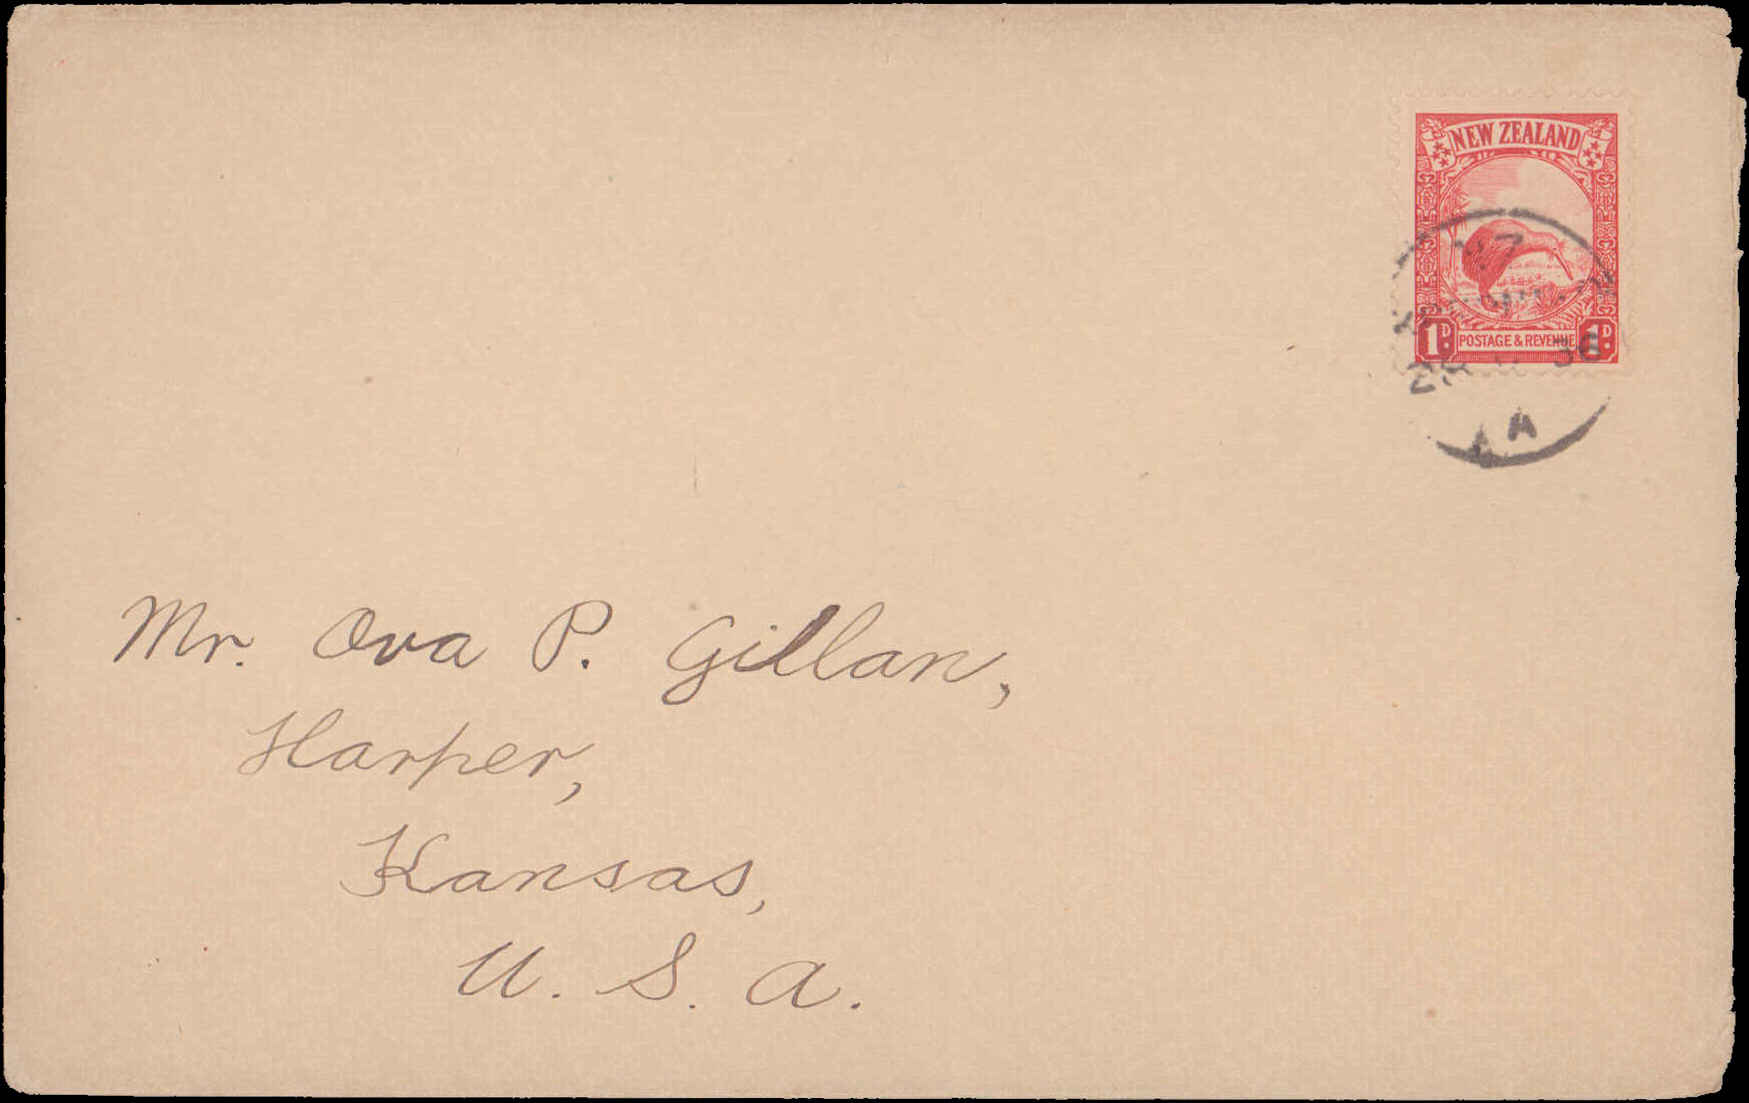 NEW ZEALAND
NZ
1D POSTAGE & REVENUE 1D
A
Mr. Ova P. Gillan,
Harper,
Kansas,
U. S. A.